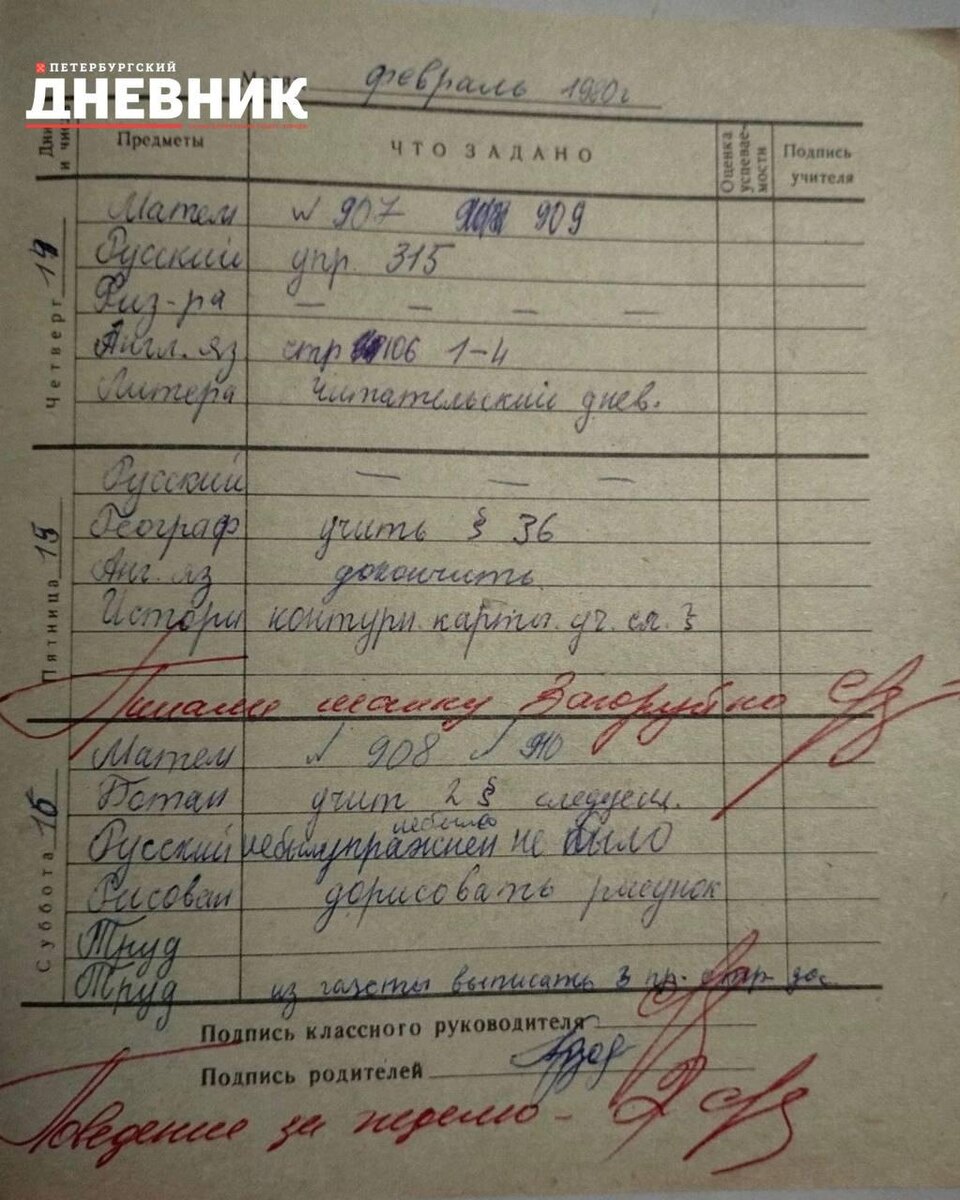 ПЕТЕРБУРГСКИЙ
ДНЕВНИК
февраль 1980г
Предметы ЧТО ЗАДАНО Оценка успевае-мости Подпись учителя
Четверг 14
Матем № 907 909
Русский упр. 315
Физ-ра — — — —
Англ. яз стр 106 1-4
Литера Читательский днев.
Пятница 15
Русский — — —
Географ учить § 36
Анг. яз докончить
Истори контурн. карты. уч. сл. §
Пинали шапку
Суббота 16
Матем № 908 № 910
Ботан учит 2 § следущ.
небыло
Русский небыл упражнен не было
Рисован дорисовать рисунок
Труд
Труд из газеты выписать 3 пр.
Подпись классного руководителя
Подпись родителей
Поведение за неделю - 2